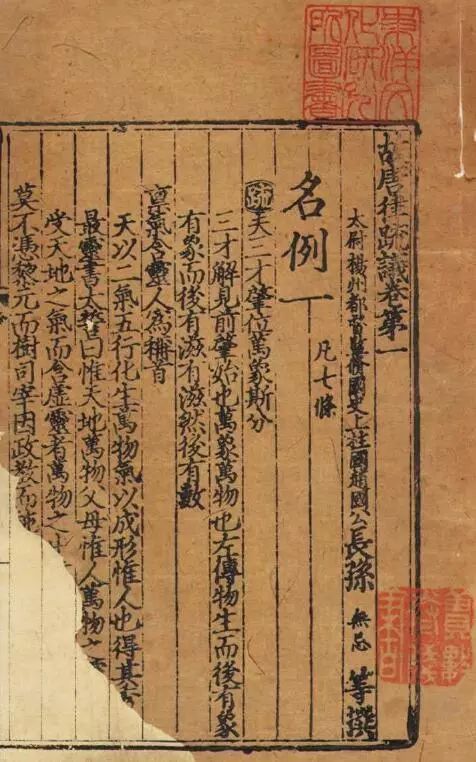 故唐律疏議卷第一
太尉揚州都督監脩國史上柱國趙國公長孫無忌等撰
名例一
凡七條
疏夫三才肇位萬象斯分
三才解見前肇始也萬象萬物也左傳物生而後有象
有象而後有滋有滋然後有數
稟氣含靈人為稱首
天以二氣五行化生萬物氣以成形惟人也得其
最靈書太誓曰惟天地萬物父母惟人萬物之
受天地之氣而含虛靈者萬物之
莫不憑黎元而樹司宰因政教而
東洋文化研究所圖書